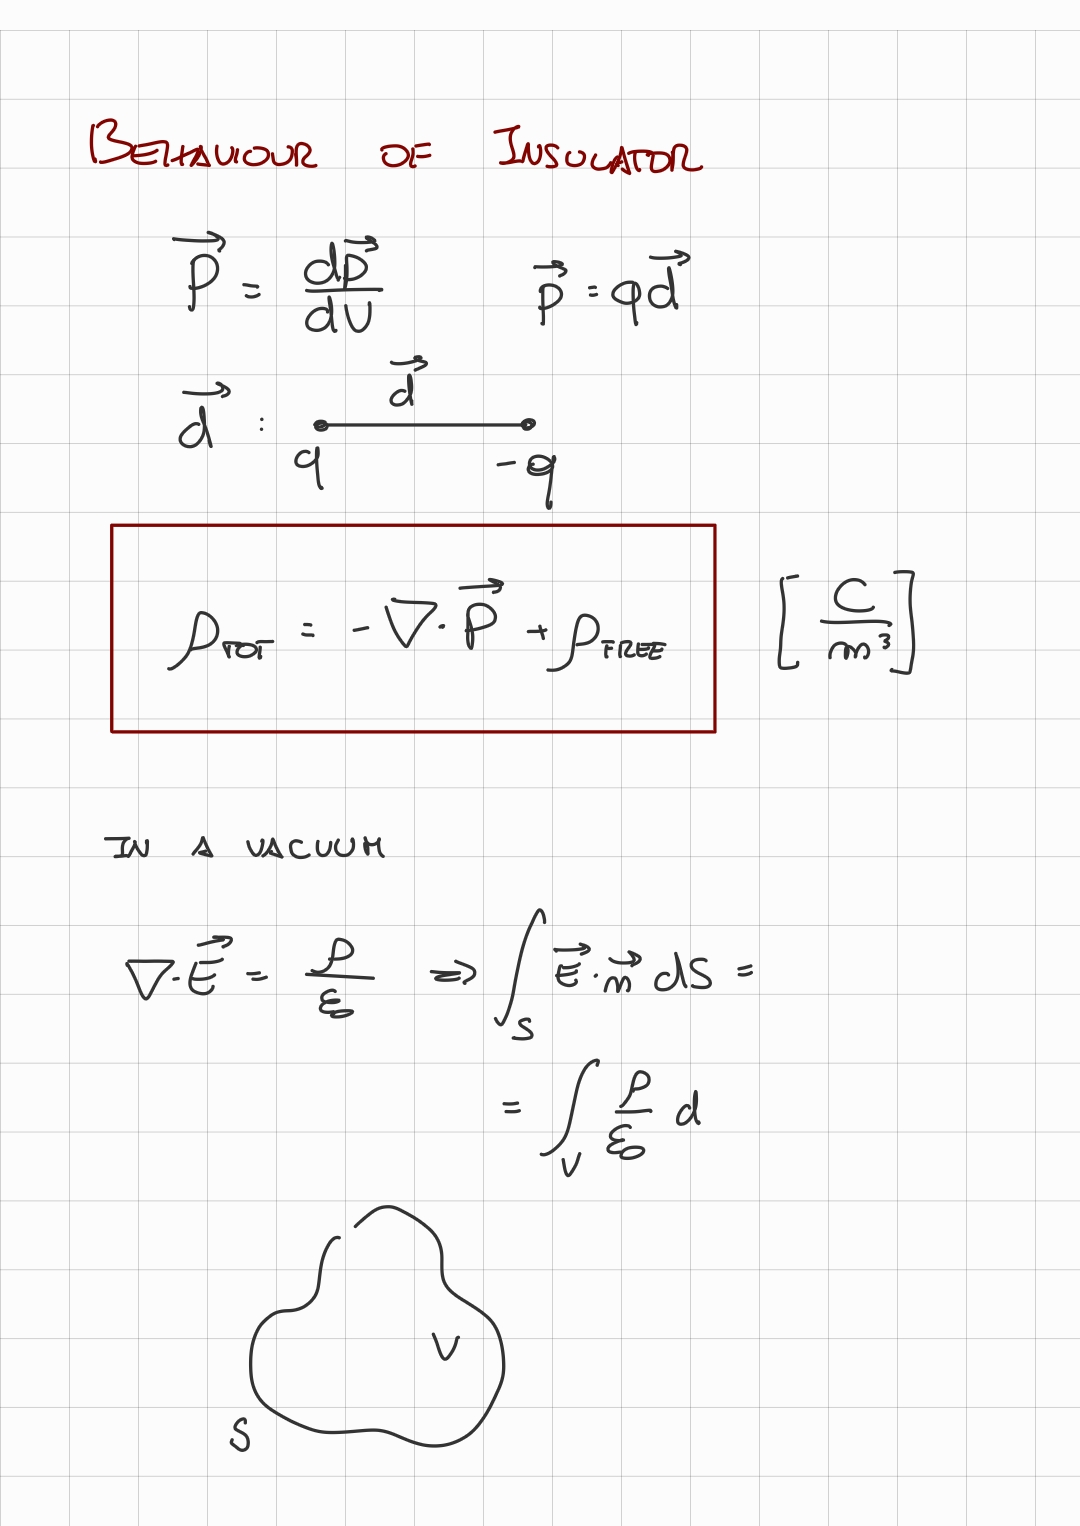 BEHAVIOUR OF INSULATOR
$\vec{P} = \frac{d\vec{p}}{dV}$ $\vec{p} = q\vec{d}$
$\vec{d}$ : $\vec{d}$
q -q
$\rho_{TOT} = -\nabla \cdot \vec{P} + \rho_{FREE}$ $\left[\frac{C}{m^3}\right]$
IN A VACUUM
$\nabla \cdot \vec{E} = \frac{\rho}{\varepsilon_0} \Rightarrow \int_S \vec{E} \cdot \vec{n} \, dS =$
$= \int_V \frac{\rho}{\varepsilon_0} d$
V
S